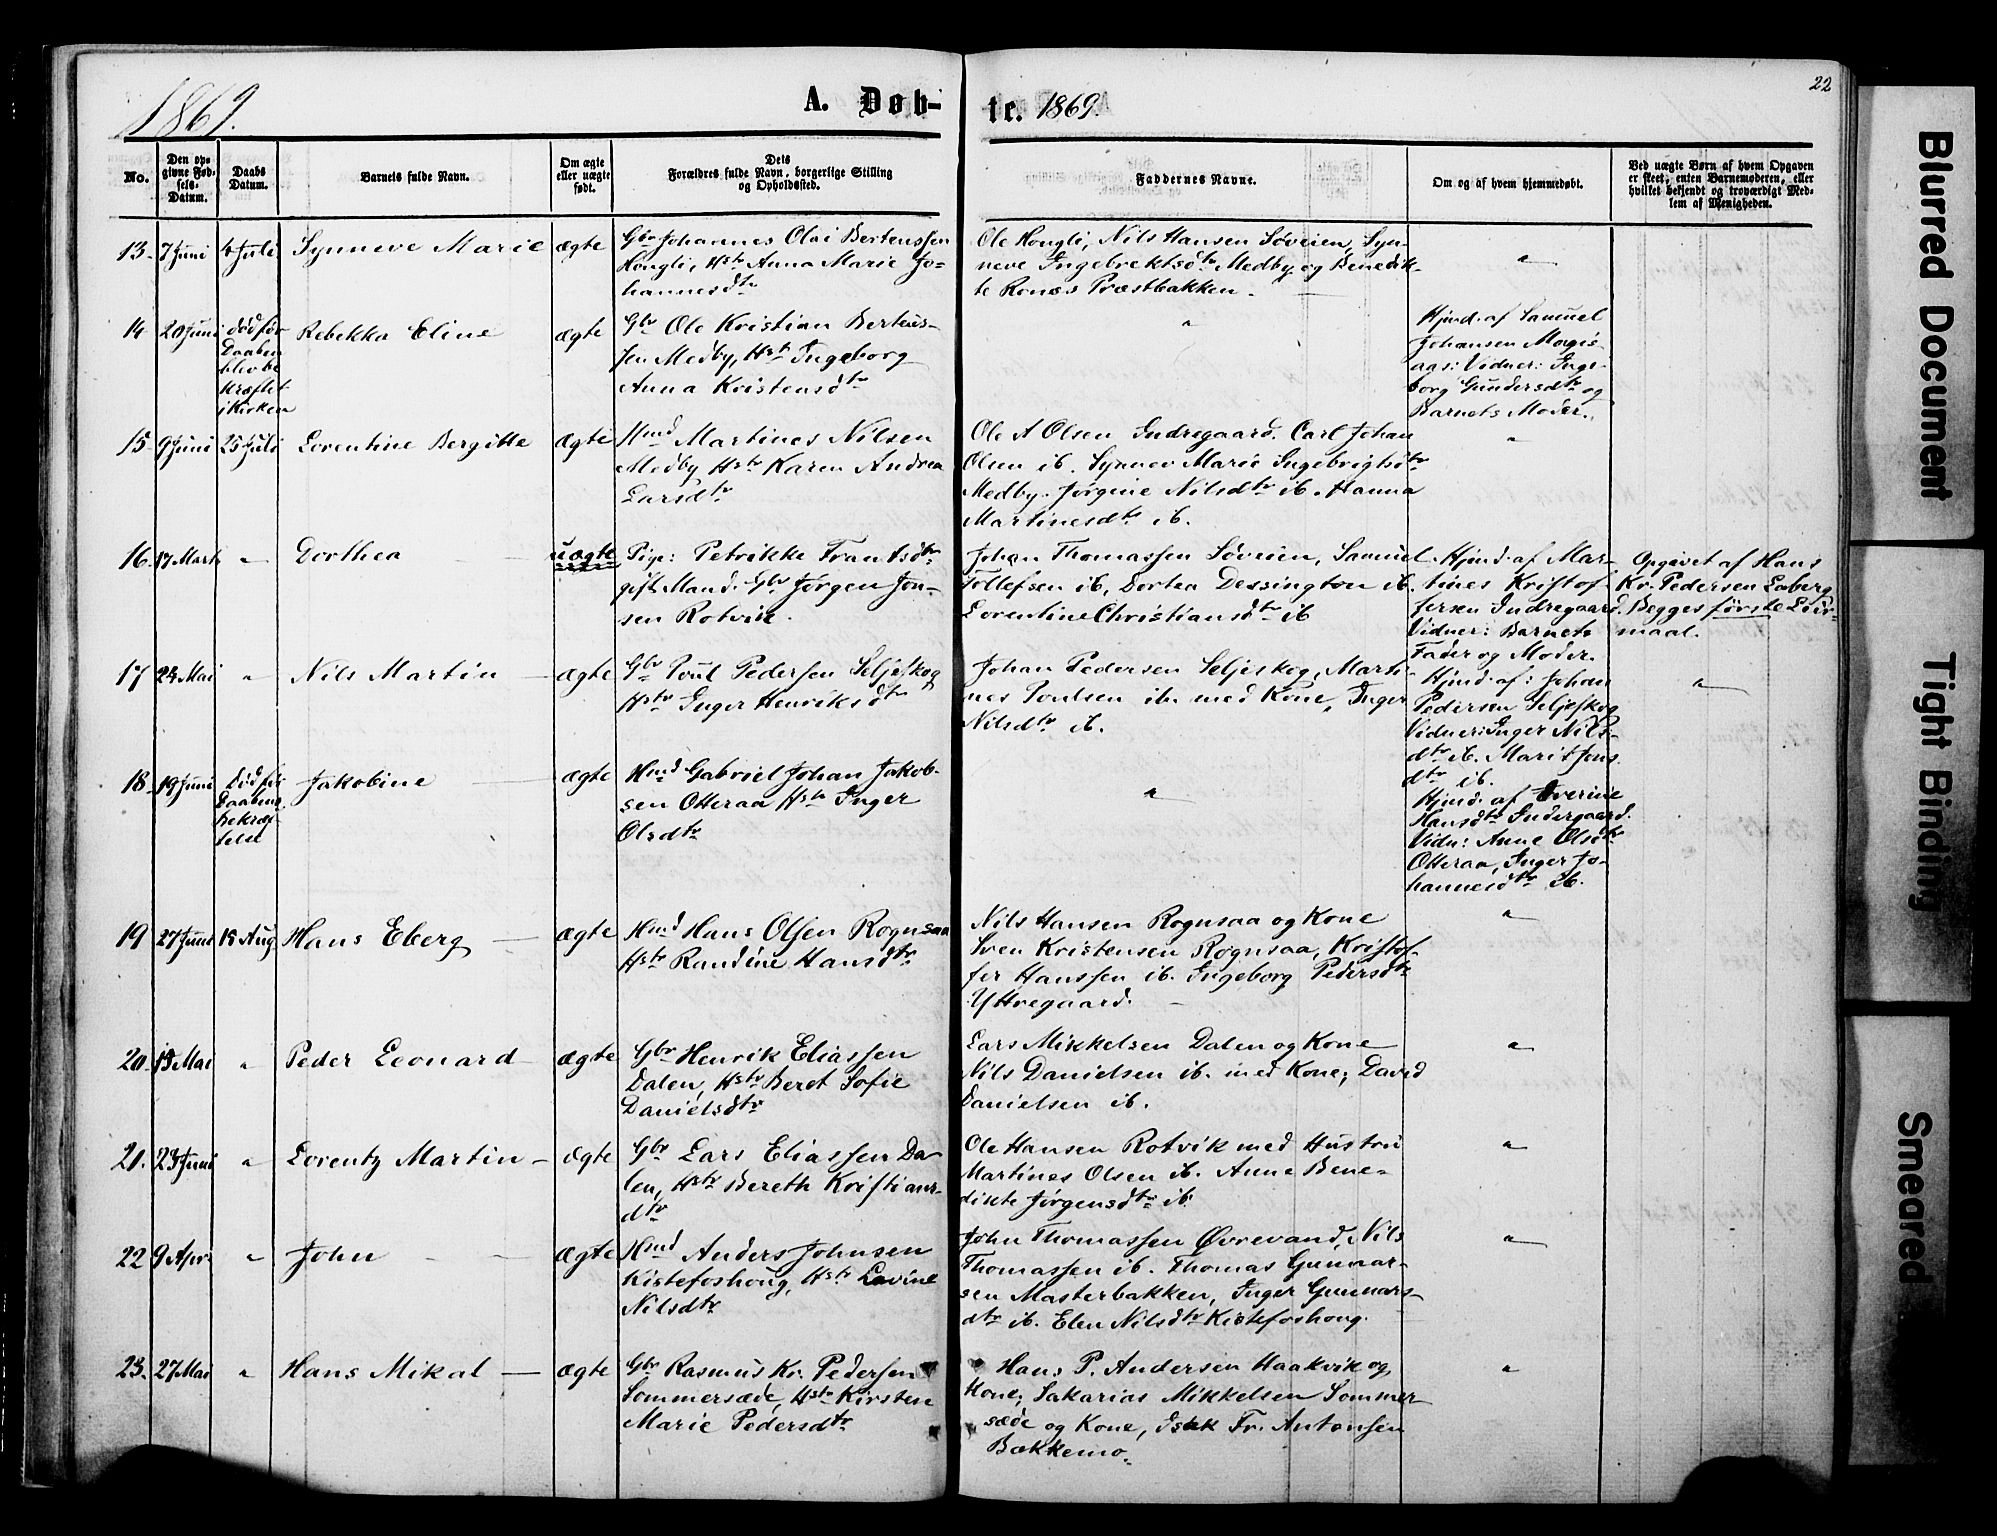 22
1869.
A. Døb-
te. 1869.
No.
Den op-
givne Fød-
sels-
Datum.
Daabs
Datum.
Barnets fulde Navn.
Om ægte
eller uægte
født.
Dets
Forældres fulde Navn, borgerlige Stilling
og Opholdssted.
Faddernes Navne.
Om og af hvem hjemmedøbt.
Ved uægte Børn af hvem Opgaven
er skeet, enten Barnemoderen, eller
hvilket bekjendt og troværdigt Med-
lem af Menigheden.
13. 7 Juni 4 Juli Synneve Marie ægte
Gbr Johannes Olai Bertenssen
Hongli, Hstr Anna Marie Jo-
hannesdtr
Ole Hongli, Nils Hansen Søveien, Syn-
neve Ingebrektsdtr Medby og Benedik-
te Ronæs Præstbakken.
"
14 20 Juni
død før
Daaben
blev be
kræftet
i Kirken
Rebekka Eline ægte
Gbr Ole Kristian Berteus-
sen Medby, Hst Ingeborg
Anna Kristensdtr
"
Hjmd. af Samuel
Johansen
aas: Vidner: Inge-
borg Gundersdtr og
Barnets Moder.
15. 9 Juni 25 Juli Lorentine Bergitte ægte
Hmd Martines Nilsen
Medby Hstr Karen Andrea
Larsdtr
Ole A Olsen Indregaard. Carl Johan
Olsen ib. Synnev Marie Ingebrigtsdtr
Medby. Jørgine Nilsdtr ib. Hanna
Martinesdtr ib.
"
16. 17 Marts " Dorthea uægte
Pige: Petrikke Frantsdtr
gift Mand. Gbr Jørgen Jon-
sen Rotvik.
Johan Thomassen Søveien, Samuel
Tollefsen ib, Dortea Dessington ib.
Lorentine Christiansdtr ib
Hjmd. af Mar-
tines Kristof-
fersen Indregaard.
Vidner: Barnets
Fader og Moder.
Opgivet af Hans
Kr. Pedersen Laberg
Begges første Leier-
maal.
17 24 Mai " Nils Martin ægte
Gbr Poul Pedersen Seljeskog
Hstr Inger Henriksdtr
Johan Pedersen Seljeskog, Marti-
nes Poulsen ib. med Kone, Inger
Nilsdtr ib.
Hjmd. af: Johan
Pedersen Seljeskog
Vidner: Inger Nils-
dtr ib. Marit Jons
dtr ib.
"
18. 19 Juni
Død før
Daabens
Bekræf-
telse
Jakobine ægte
Hmd Gabriel Johan Jakob-
sen Otteraa Hstr Inger
Olsdtr
"
Hjmd. af Overine
Hansdtr Indergaard.
Vidn: Anne Olsdtr
Otteraa, Inger Jo-
hannesdtr ib.
19 27 Juni 15 Aug Hans Eberg ægte
Hmd Hans Olsen Rognsaa
Hstr Randine Hansdtr
Nils Hansen Rognsaa og Kone
Sven Kristensen Rognsaa, Kristof-
fer Hanssen ib. Ingeborg Pedersdtr
Yttregaard.
"
20. 13 Mai " Peder Leonard ægte
Gbr Henrik Eliassen
Dalen, Hstr Beret Sofie
Danielsdtr
Lars Mikkelsen Dalen og Kone
Nils Danielsen ib. med Kone, David
Danielsen ib.
"
21. 23 Juni " Lorentz Martin ægte
Gbr Lars Eliassen Da-
len, Hstr Bereth Kristians-
dtr
Ole Hansen Rotvik med Hustru
Martines Olsen ib. Anne Bene-
dikte Jørgensdtr ib.
"
22 9 Apr. " John ægte
Hmd Anders Johnsen
Kistefoshoug, Hstr Lavine
Nilsdtr
John Thomassen Øvrevand, Nils
Thomassen ib. Thomas Gunnar-
sen Masterbakken, Inger Gunnars-
dtr ib. Elen Nilsdtr Kistefoshoug.
"
23. 27 Mai " Hans Mikal ægte
Gbr Rasmus Kr. Pedersen
Sommersæde, Hstr Kirsten
Marie Pedersdtr
Hans P. Andersen Haakvik og
Kone, Sakarias Mikkelsen Sommer
sæde og Kone, Isak Fr. Antonsen
Bækkemo.
"
Blurred Document
Tight Binding
Smeared